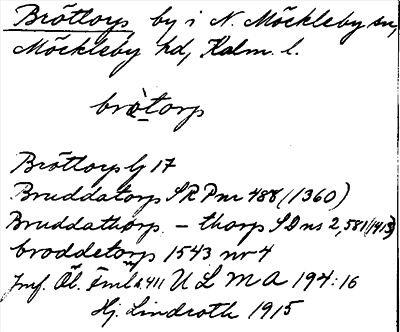 Bröttorps by i N. Möckleby sn,
Möckleby hd, Kalm. l.
brötorp
Bröttorp Gj 17
Bruddatorp SRP nr 488 (1360)
Bruddathorp – thorp SD ns 2,581 (1413)
broddetorp 1543 nr 4
Jmf. Öl. Fmb a 411 ULMA 194:16
Hj. Lindroth 1915